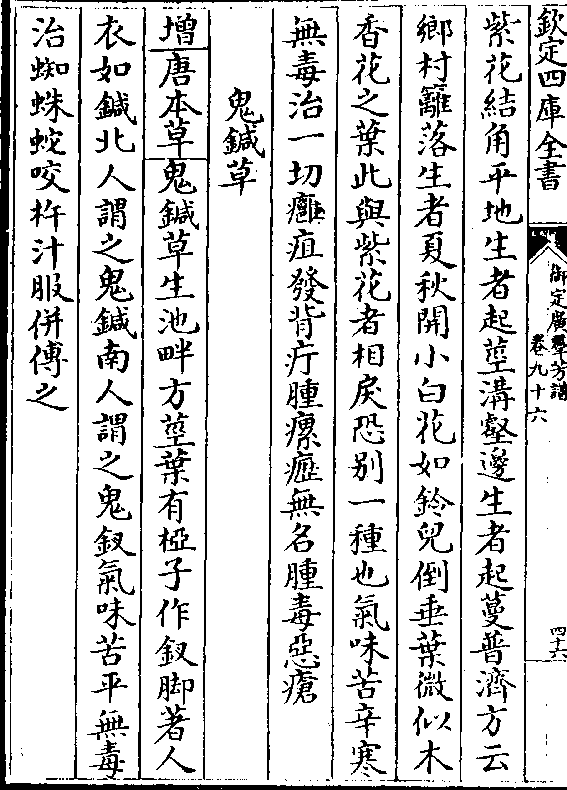 欽定四庫全書
御定廣羣芳譜
卷九十六
四十六
紫花結角平地生者起莖溝壑邊生者起蔓普濟方云
鄉村籬落生者夏秋開小白花如鈴兒倒垂葉微似木
香花之葉此與紫花者相戾恐别一種也氣味苦辛寒
無毒治一切癰疽發背疔腫瘰癧無名腫毒惡瘡
鬼鍼草
增唐本草鬼鍼草生池畔方莖葉有椏子作釵脚著人
衣如鍼北人謂之鬼鍼南人謂之鬼釵氣味苦平無毒
治蜘蛛蛇咬杵汁服併傅之